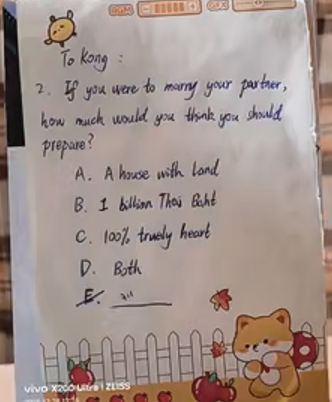 To Kong :
2. If you were to marry your partner,
how much would you think you should
prepare?
A. A house with land
B. 1 billion Thai Baht
C. 100% truely heart
D. Both
E. all
vivo X200 Ultra | ZEISS